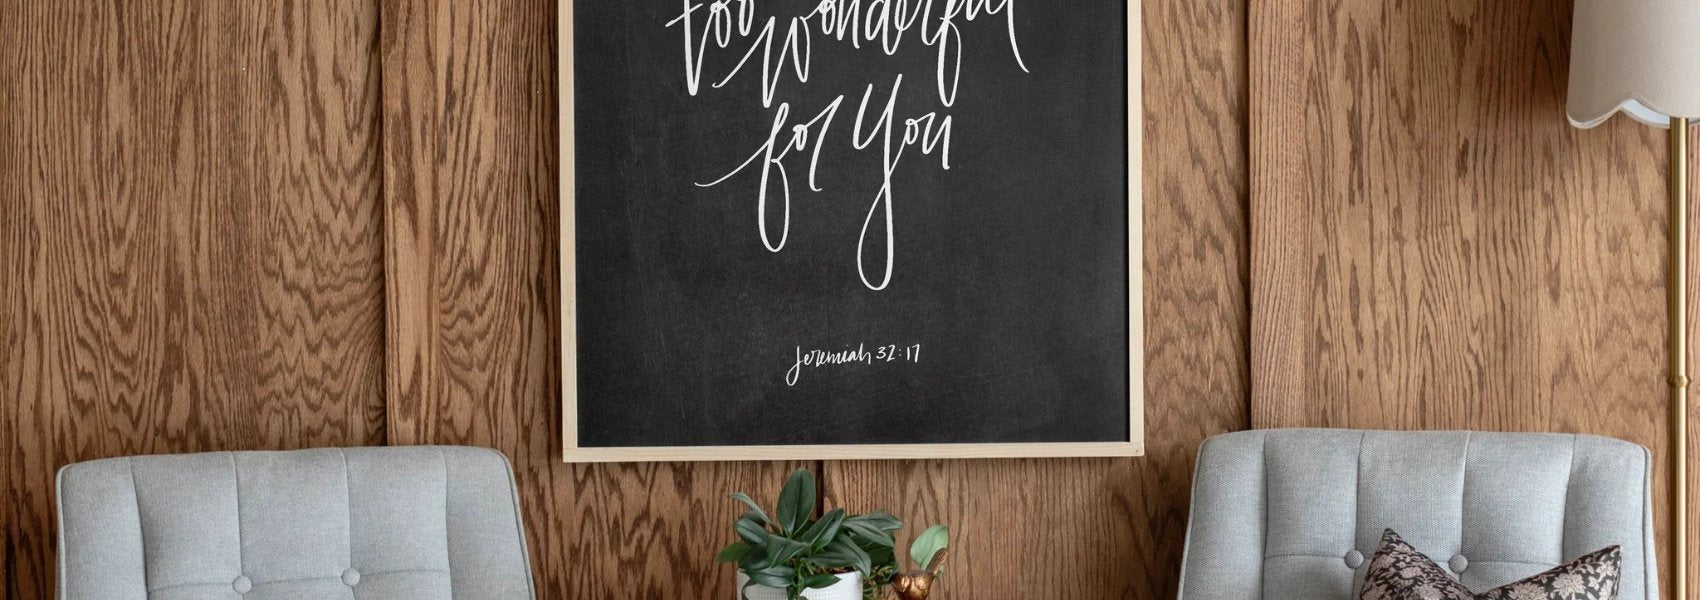 too wonderful
for You
Jeremiah 32:17